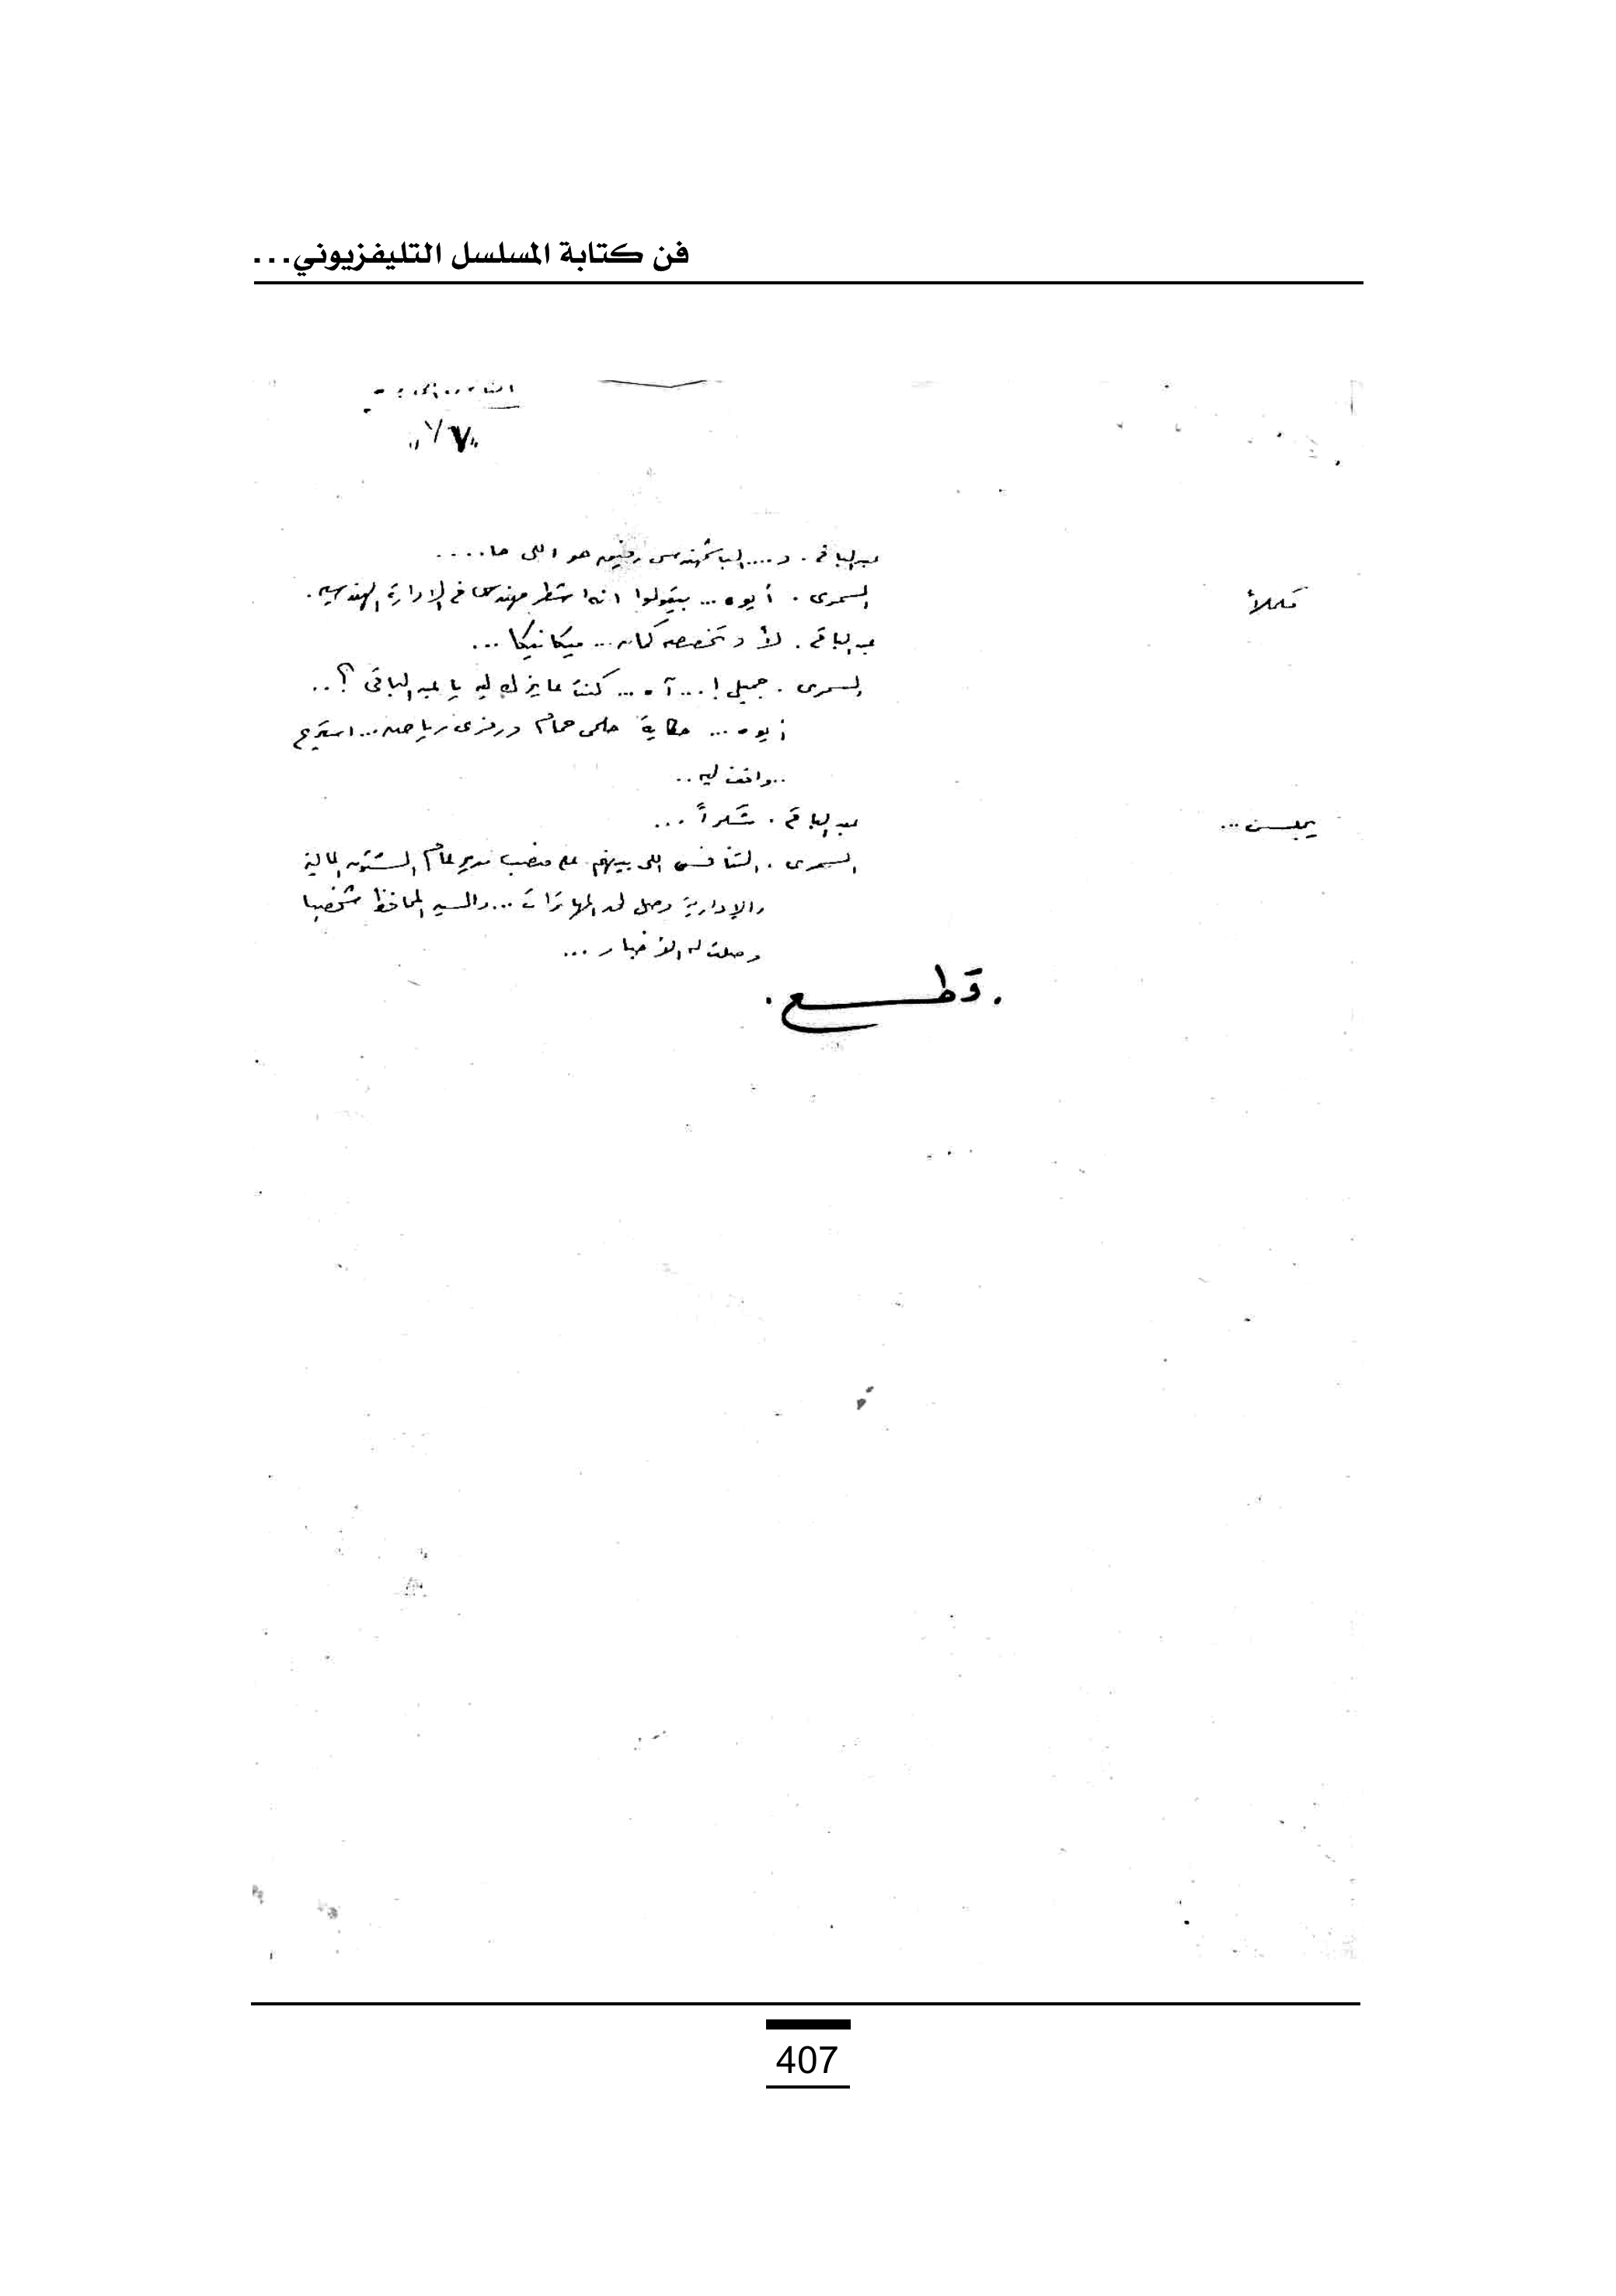 فن كتابة المسلسل التليفزيوني...
"١٧"
عبد الباقى . و.... الباشمهندس رفيق هو اللى حا.....
مكملاً
السمرى . أيوه ... بيقولوا انه اشطر مهندس فى الإدارة الهندسية .
عبد الباقى . لأ وتخصصه كمان ... ميكانيكا ...
السمرى . جميل ! ... آه ... كنت عايزك ليه يا عبد الباقى ؟ ..
أيوه ... حكاية حلمى همام ورمزى رياض ... استريح
.. واقف ليه ..
يجلس ...
عبد الباقى . شكراً ...
السمرى . التنافس اللى بينهم على منصب مدير عام الشئون المالية
والإدارية وصل لحد المهاترات ... والسيد المحافظ شخصيا
وصلت له الأخبار ...
. قطع .
407